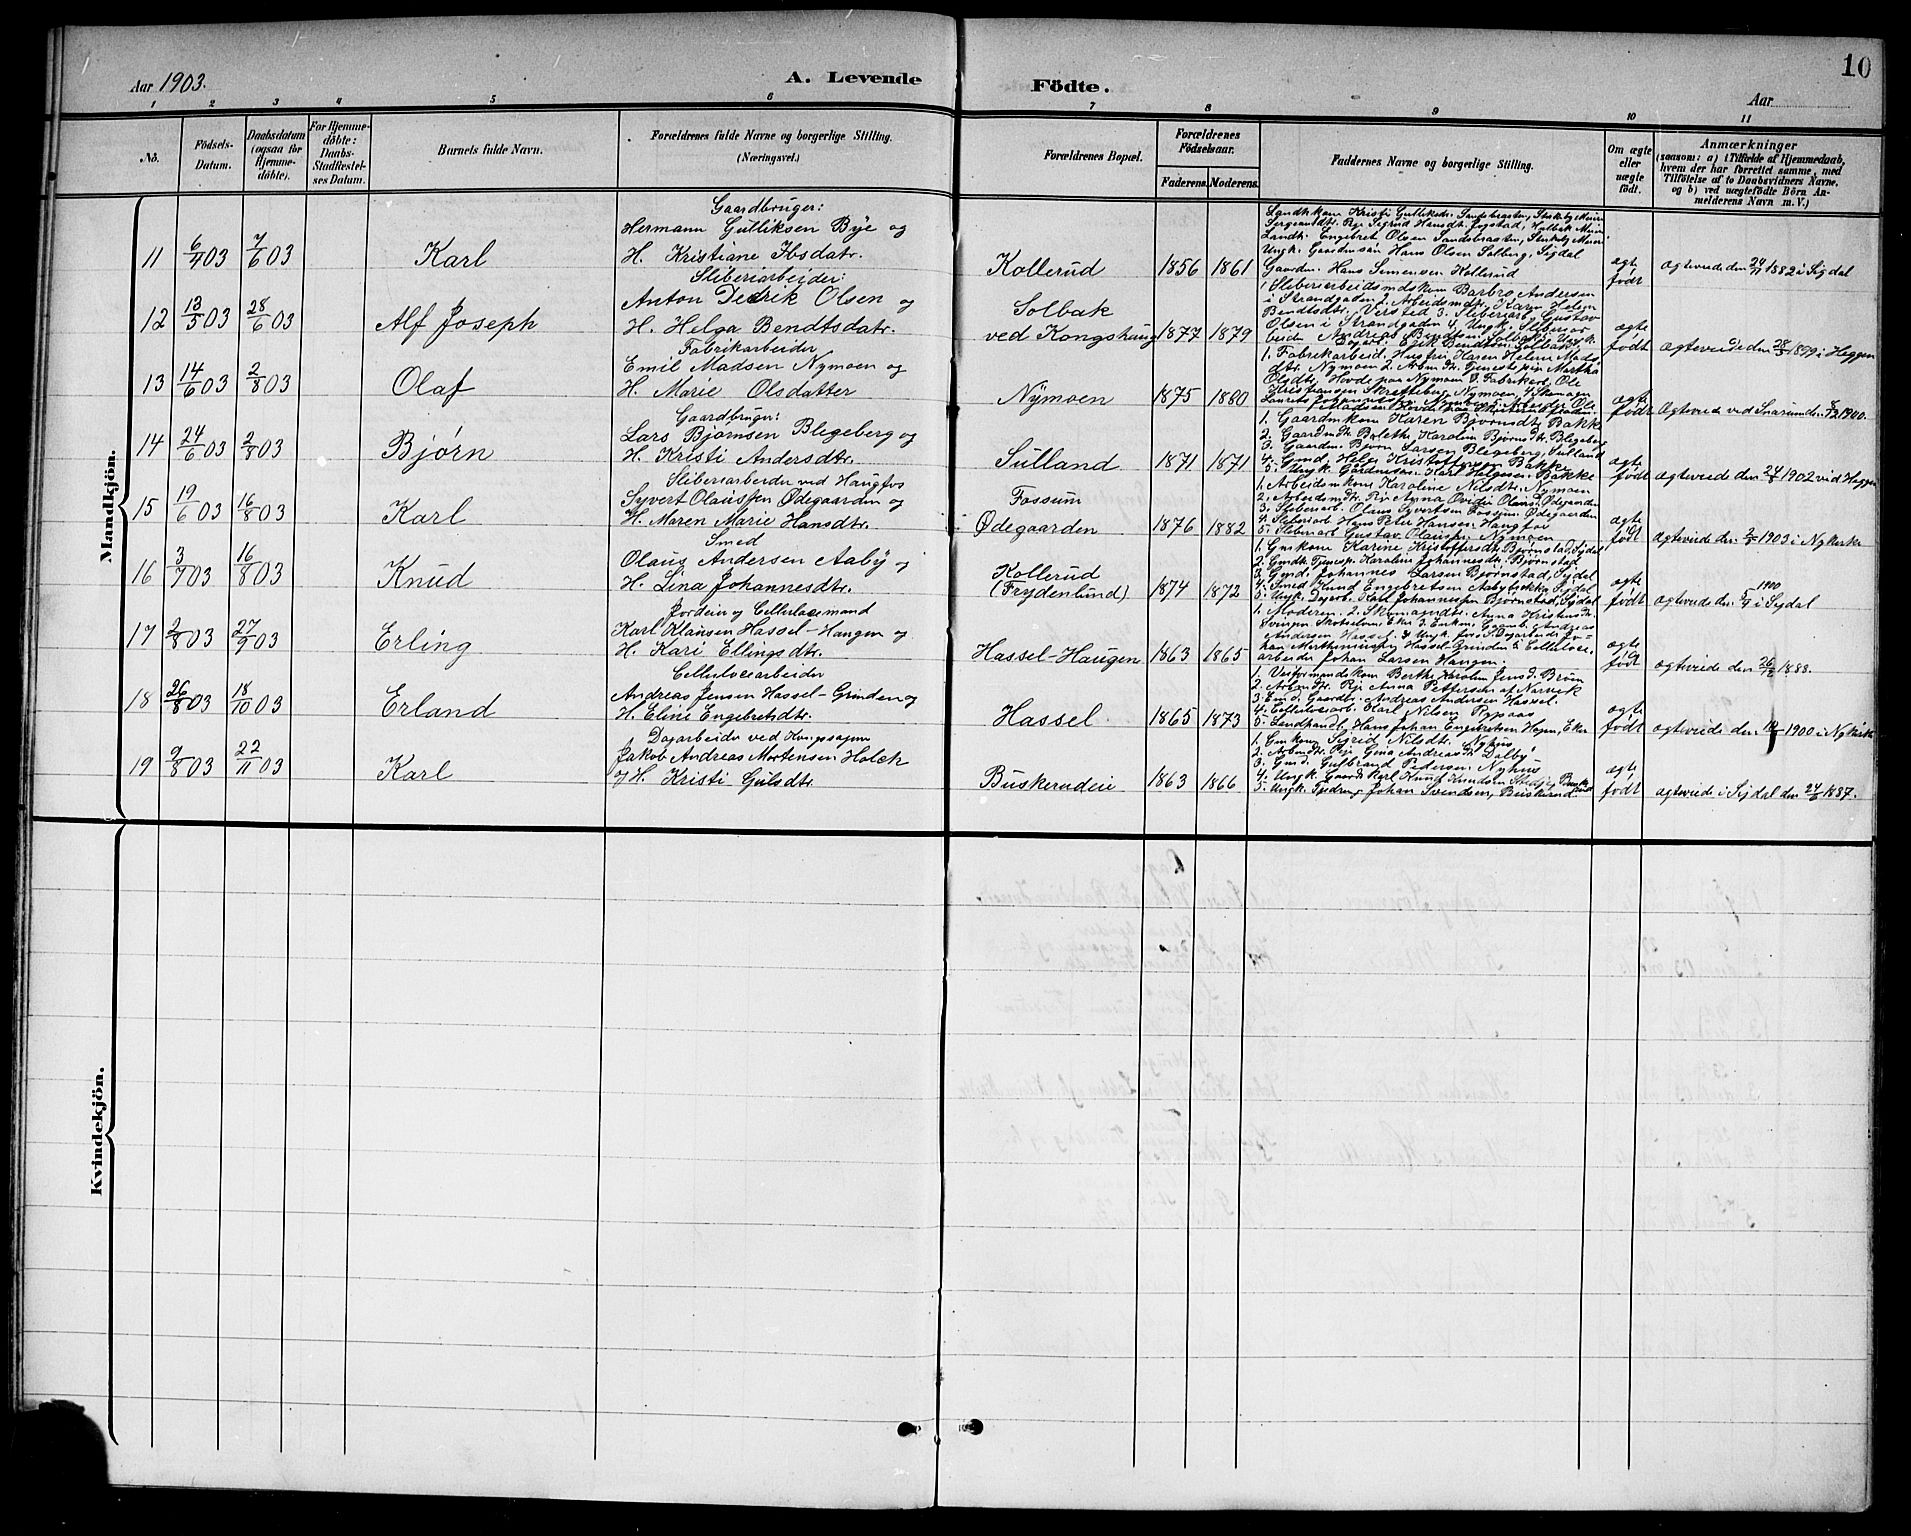 10
Aar 1903.
A. Levende
Födte.
Aar
1 2 3 4 5 6 7 8 9 10 11
No.
Födsels-
Datum.
Daabsdatum
(ogsaa for
Hjemme-
döbte).
For Hjemme-
döbte:
Daabs-
Stadfæstel-
ses Datum.
Barnets fulde Navn.
Forældrenes fulde Navne og borgerlige Stilling.
(Næringsvei.)
Forældrenes Bopæl.
Forældrenes
Födselsaar.
Faderens. Moderens.
Faddernes Navne og borgerlige Stilling.
Om ægte
eller
uægte
födt.
Anmærkninger
(saasom: a) i Tilfælde af Hjemmedaab,
hvem der har forrettet samme, med
Tilföielse af to Daabsvidners Navne,
og b) ved uægtefödte Börn An-
melderens Navn m. V.)
Mandkjön.
11 6/4 03 7/6 03 Karl
Gaardbruger:
Hermann Gulliksen Bye og
H. Kristiane Ibsdatr.
Kollerud 1856 1861
Ungk. Gaardmsøn Hans Olsen Solberg, Sigdal
Gaardm. Hans Simensen Kollerud
ægte født
ægteviede den 24/11 1882 i Sigdal
12 13/5 03 28/6 03 Alf Joseph
Sliberiarbeider:
Anton Dedrik Olsen og
H. Helga Bendtsdatr.
Solbak
ved Kongshaug 1877 1879
1 Sliberiarbeidsmdskom Barbro Andersen
i Strandgaden 2. Arbeidsmdtr. Karen Helen
Bendtsdtr. Versted 3. Sliberiarb. Gustav
Olsen i Strandgaden 4. Ungk. Sliberiar
ægte født
ægteviede den 28/5 1899 i Heggen
13 14/6 03 2/8 03 Olaf
Fabrikarbeider
Emil Madsen Nymoen og
H. Marie Olsdatter
Nymoen 1875 1880
1. Fabrikarbeid. Hustru Karen Helene Mads-
dtr. Nymoen 2. Arbm dtr. Tjenestepie Martha
Olsdtr. Hovde paa Nymoen 3. Fabrikarb. Ole
Kristiansen Skretteberg, Nymoen 4.
ægte født
Ægteviede ved Snarum den 8/12 1900.
14 24/6 03 2/8 03 Bjørn
Gaardbruger:
Lars Bjørnsen Blegeberg og
H. Kristi Andersdtr.
Sulland 1871 1871
1. Gaardmkone Karen Bjørnsdtr. Bakke
2. Gaardm dtr. Berethe Karoline Bjørnsdtr. Blegeberg
3. Gaardm. Bjørn Larsen Blegeberg, Sulland
4. Gmd. Helge Kristoffersen Bakke
5. Ungk. Gaardmsøn Karl Helgesen Bakke
ægte født
ægteviede den 24/5 1902 ved Heggen
15 19/6 03 16/8 03 Karl
Sliberiarbeider ved Haugfos
Syvert Olaussen Ødegaarden og
H. Maren Marie Hansdtr.
Fossum
Ødegaarden 1876 1882
1. Arbeidsmkone Karoline Nilsdtr. Nymoen
2. Arbeidsmdtr. Pije Anna Ovidie Olausd. Ødegaarden
3. Sliberiarb. Olaus Syvertsen Fossum. Ødegaarden
4. Sliberiarb Hans Peter Hansen. Haugfos
5. Sliberiarb Gustav Olaussen, Nymoen
ægte født
ægteviede den 2/5 1903 i Nykirke
16 3/7 03 16/8 03 Knud
Smed
Olaus Andersen Aaby og
H. Lina Johannesdtr.
Kollerud
(Frydenlund) 1874 1872
1. Gmkone Karine Kristoffersdt. Bjørnstad, Sigdal
2. Gmdt. Tjenesp. Karoline Johannesdtr. Bjørnstad
3. Gmd. Johannes Larsen Bjørnstad, Sigdal
4. Smed Knud Engebretsen Aabyløkka, Sigdal
5. Ungk. Dagarb. Karl Johannessen Bjørnstad, Sigdal
ægte født
ægteviede den 5/4 1900 i Sigdal
17 2/8 03 27/9 03 Erling
Jordein og Cellulosemand
Karl Klausen Hassel-Haugen og
H. Kari Ellingsdtr.
Hassel-Haugen 1863 1865
1. Moderen. 2. Skomagrdtr. Anna Kristens D.
Svingen Skotselven, Eker 3. Enkem. Gaardb. Andreas
Andersen Hassel. 4. Ungk. fors. Dagarbeider Jo-
han Mortinnussen Hassel-Grinden 5. Cellulose-
arbeider Johan Larsen Haugen.
ægte født
ægteviede den 26/12 1888.
18 26/8 03 18/10 03 Erland
Cellulosearbeider
Andreas Jensen Hassel-Grinden og
H. Eline Engebretsdtr.
Hassel 1865 1873
1. Verksformandskom Berthe Karoline Jens d. Broen
2. Arbmdtr. Pije Anna Pettersen af Narvik
3. Gmd. Gaardbr. Andreas Andersen Hassel.
4. Cellulosearb. Karl Nilsen Ryghaas
5. Landhandl. Hans Johan Engebretsen Hagen, Eker
ægte født
ægteviede den 1900 i Nykirke
19 9/8 03 22/11 03 Karl
Dagarbeider ved Kongssagene
Jakob Andreas Mortensen Holck
og H. Kristi Gulsdtr.
Buskerudeie 1863 1866
1. Gmkone Sigrid Nilsdtr. Nyhus
2. Arbmdtr. Pije Gina Andreasdt. Dalby
3. Gmd. Gulbrand Pedersen Nyhus
4. Ungk. Gaardskarl Knud Knudsen
5. Ungk. Tjedreng Johan Svendsen, Buskerud
ægte født
ægteviede i Sigdal den 24/6 1887.
Kvindekjön.